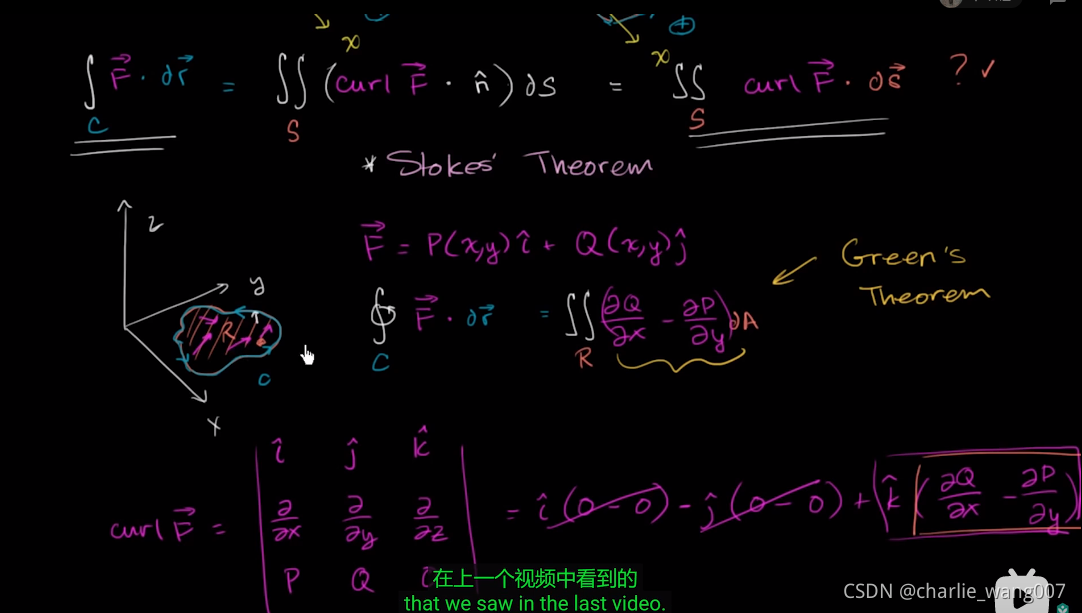 x ⊕ x
∫_C F⃗ · dr⃗ = ∬_S (curl F⃗ · n̂) dS = ∬_S curl F⃗ · ds⃗ ? ✓
* Stokes' Theorem
z
F⃗ = P(x,y) î + Q(x,y) ĵ
y
Green's
Theorem
R
∮_C F⃗ · dr⃗ = ∬_R (∂Q/∂x − ∂P/∂y) dA
C
x
î ĵ k̂
curl F⃗ = ∂/∂x ∂/∂y ∂/∂z = î(0 − 0) − ĵ(0 − 0) + k̂(∂Q/∂x − ∂P/∂y)
P Q
在上一个视频中看到的
that we saw in the last video.
CSDN @charlie_wang007